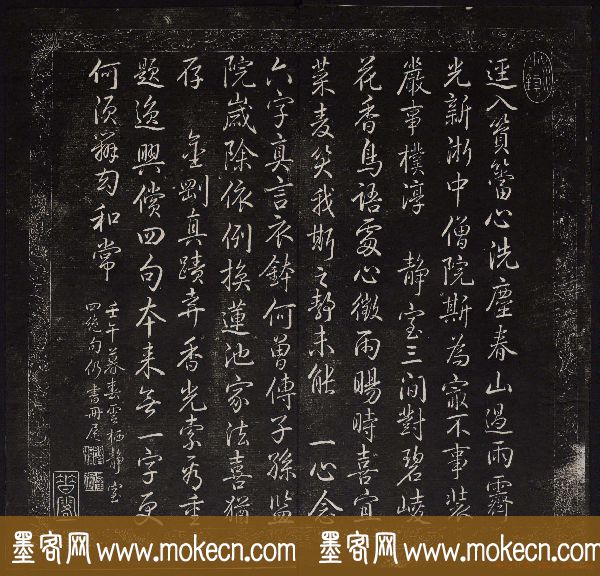 逕入篔簹心洗塵春山過雨霽
光新淛中僧院斯為寂不事裝
嚴事樸淳 静室三間對碧崚
花香鳥語處心徵雨暘時喜宜
菜麦笑我斯之静未能 一心念
六字真言衣鉢何曾傳子孫監
院歲除依例換蓮池家法喜猶
存 金剛真蹟弆香光索為重
題逸興償四句本来無一字更
何須辨句和常
壬午暮春雲栖静室
四絶句仍書冊尾
墨客网 www.mokecn.com 墨客网 www.mokecn.com